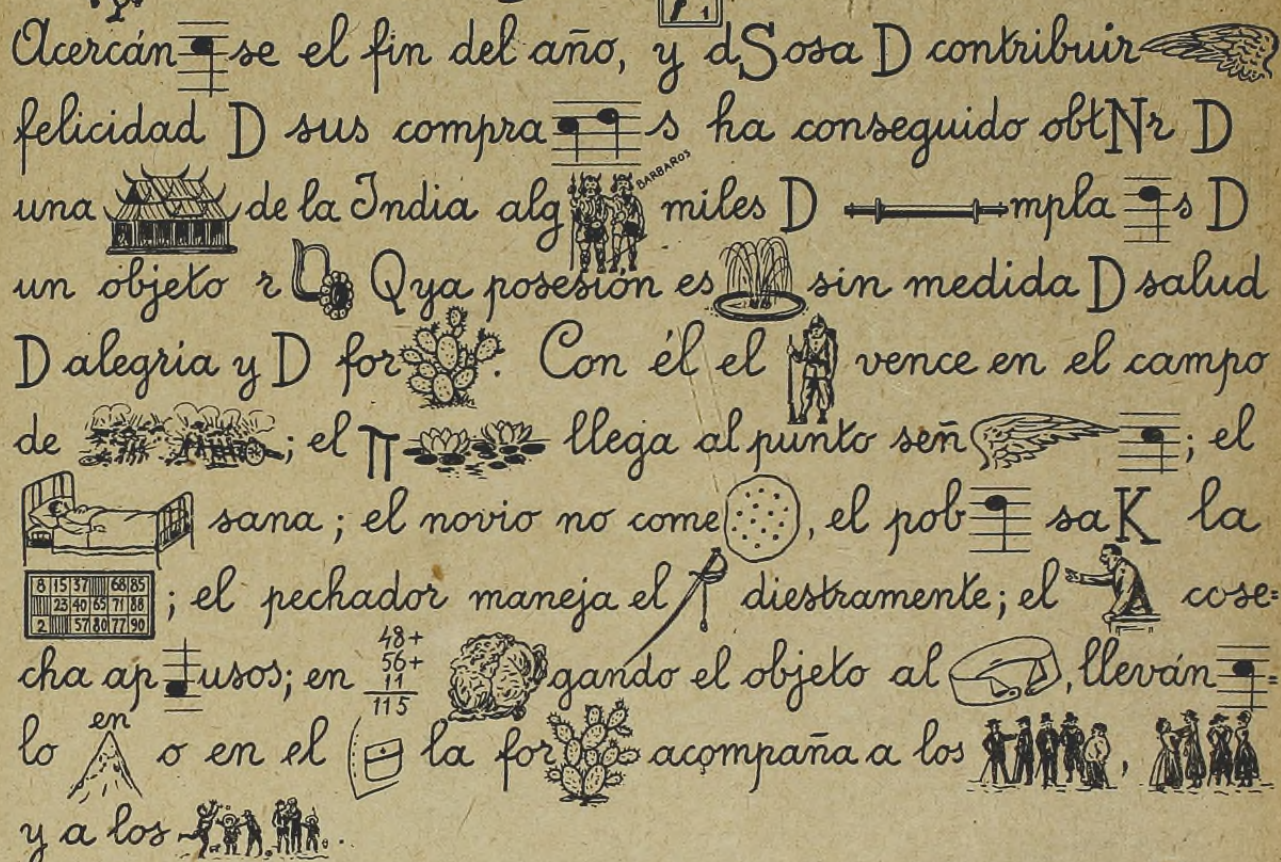 Acercán se el fin del año, y dSosa D contribuir
felicidad D sus compra s ha conseguido obtNr D
una de la India alg BARBAROS miles D mpla s D
un objeto r Qya posesión es sin medida D salud
D alegria y D for . Con él el vence en el campo
de ; el π llega al punto señ ; el
sana ; el novio no come , el pob saK la
8 15 37 68 85
23 40 65 71 88
2 57 80 77 90
; el pechador maneja el diestramente; el cose=
cha ap usos; en 48+
56+
11
115
gando el objeto al , lleván =
lo en o en el la for acompaña a los ,
y a los .